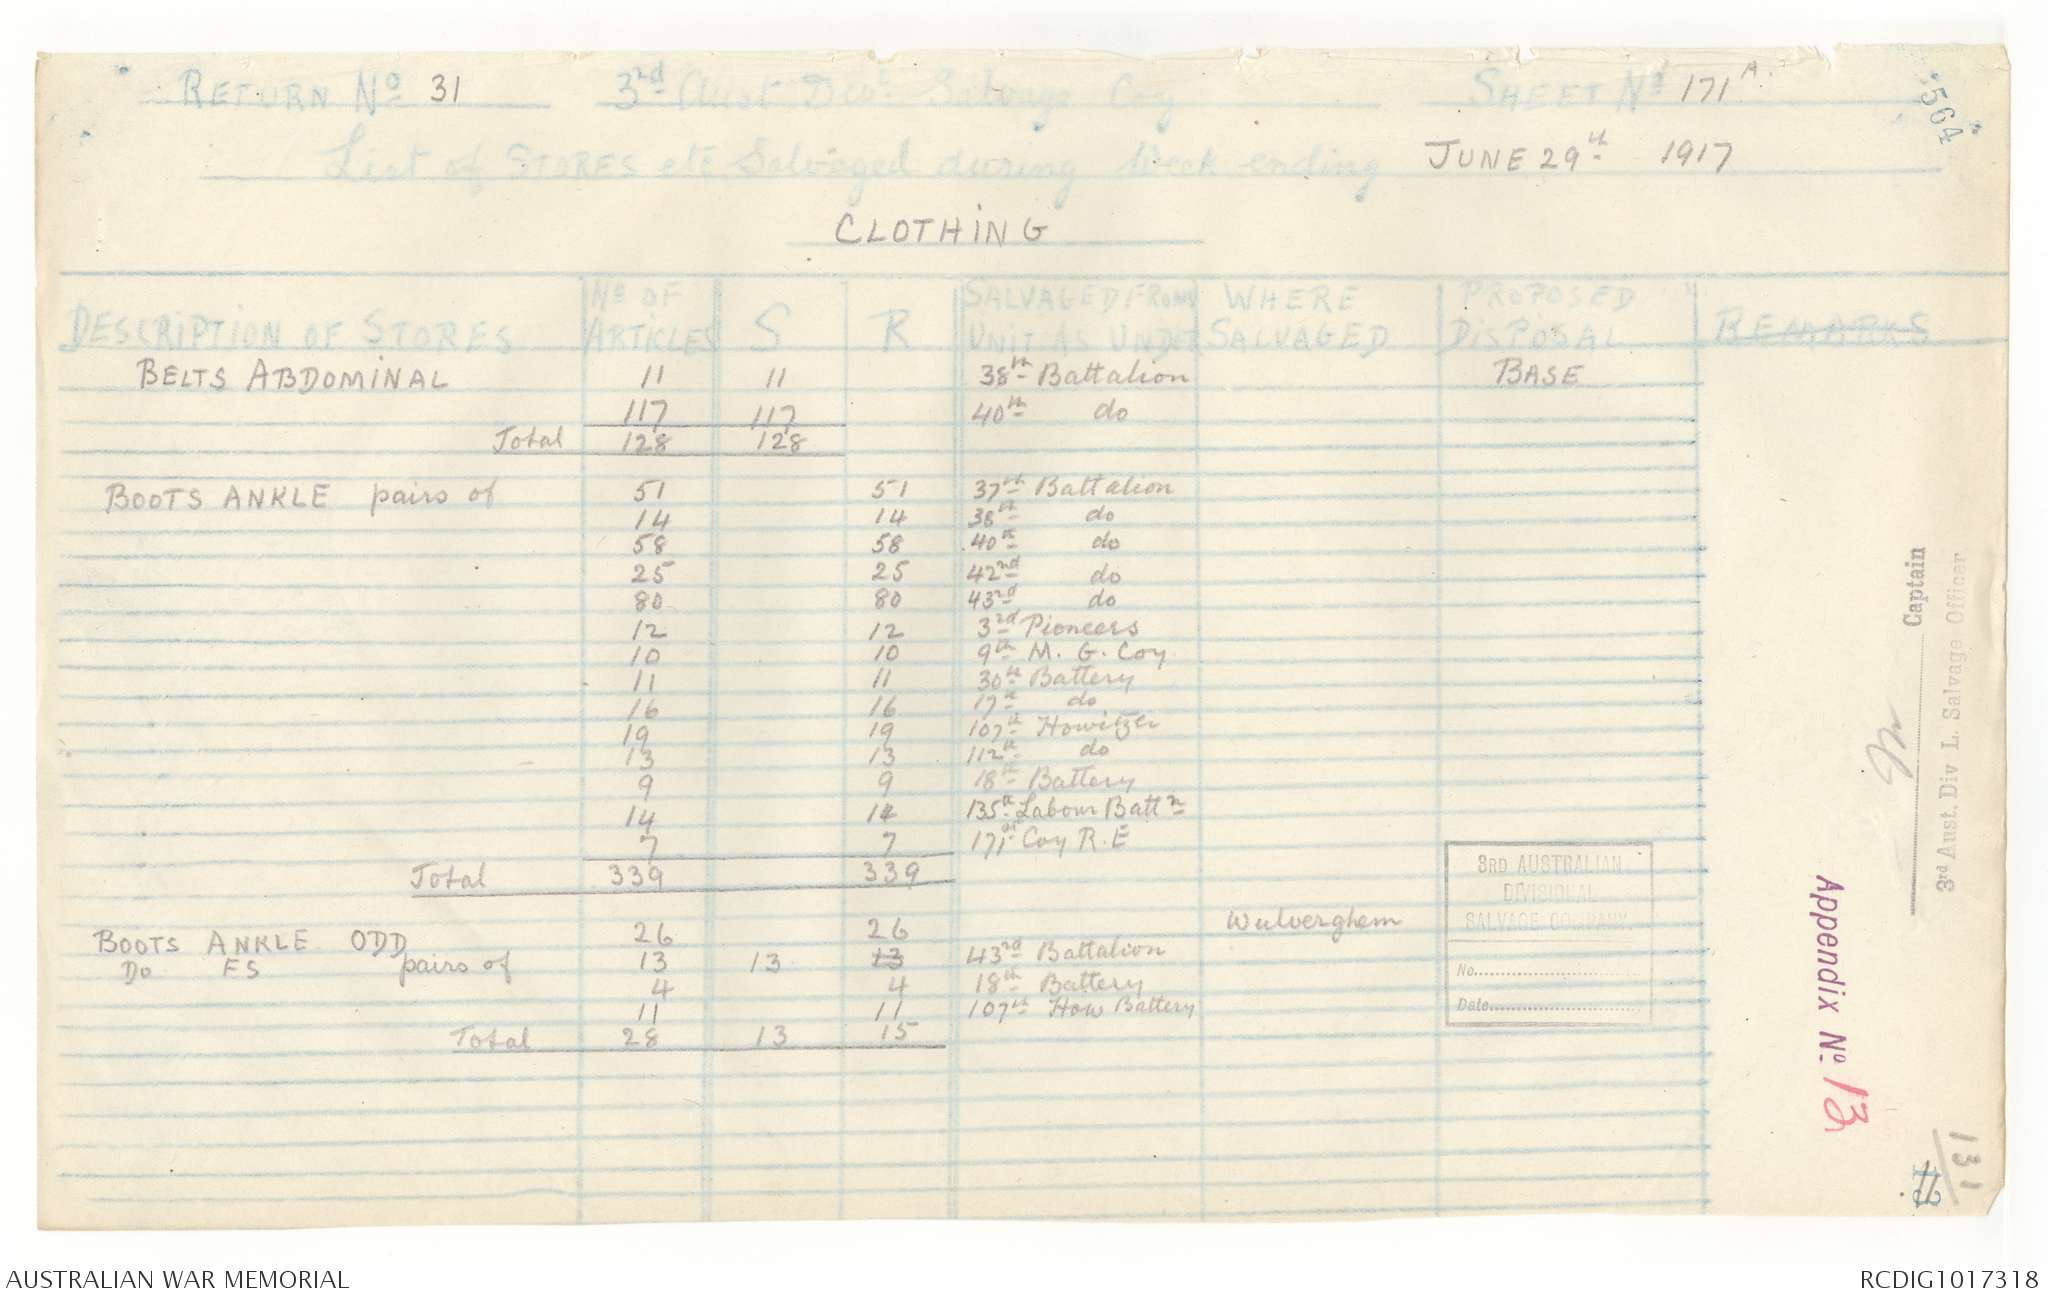 RETURN No 31 3rd Aust Divl Salvage Coy SHEET No 171A.
564
List of STORES etc Salvaged during Week ending JUNE 29th 1917
CLOTHING
DESCRIPTION OF STORES No OF ARTICLES S R SALVAGED FROM UNIT AS UNDER WHERE SALVAGED PROPOSED DISPOSAL REMARKS
BELTS ABDOMINAL 11 11 38th Battalion BASE
117 117 40th do
Total 128 128
BOOTS ANKLE pairs of 51 51 37th Battalion
14 14 38th do
58 58 40th do
25 25 42nd do
80 80 43rd do
12 12 3rd Pioneers
10 10 9th M. G. Coy
11 11 30th Battery
16 16 17th do
19 19 107th Howitzer
13 13 112th do
9 9 18th Battery
14 14 135th Labour Battn
7 7 171st Coy R.E
Total 339 339
BOOTS ANKLE ODD 26 26 Wulverghem
Do FS pairs of 13 13 13 43rd Battalion
4 4 18th Battery
11 11 107th How Battery
Total 28 13 15
3RD AUSTRALIAN
DIVISIONAL
SALVAGE COMPANY.
No.
Date
Captain
3rd Aust. Div L. Salvage Officer
Appendix No. 13
131
AUSTRALIAN WAR MEMORIAL
RCDIG1017318